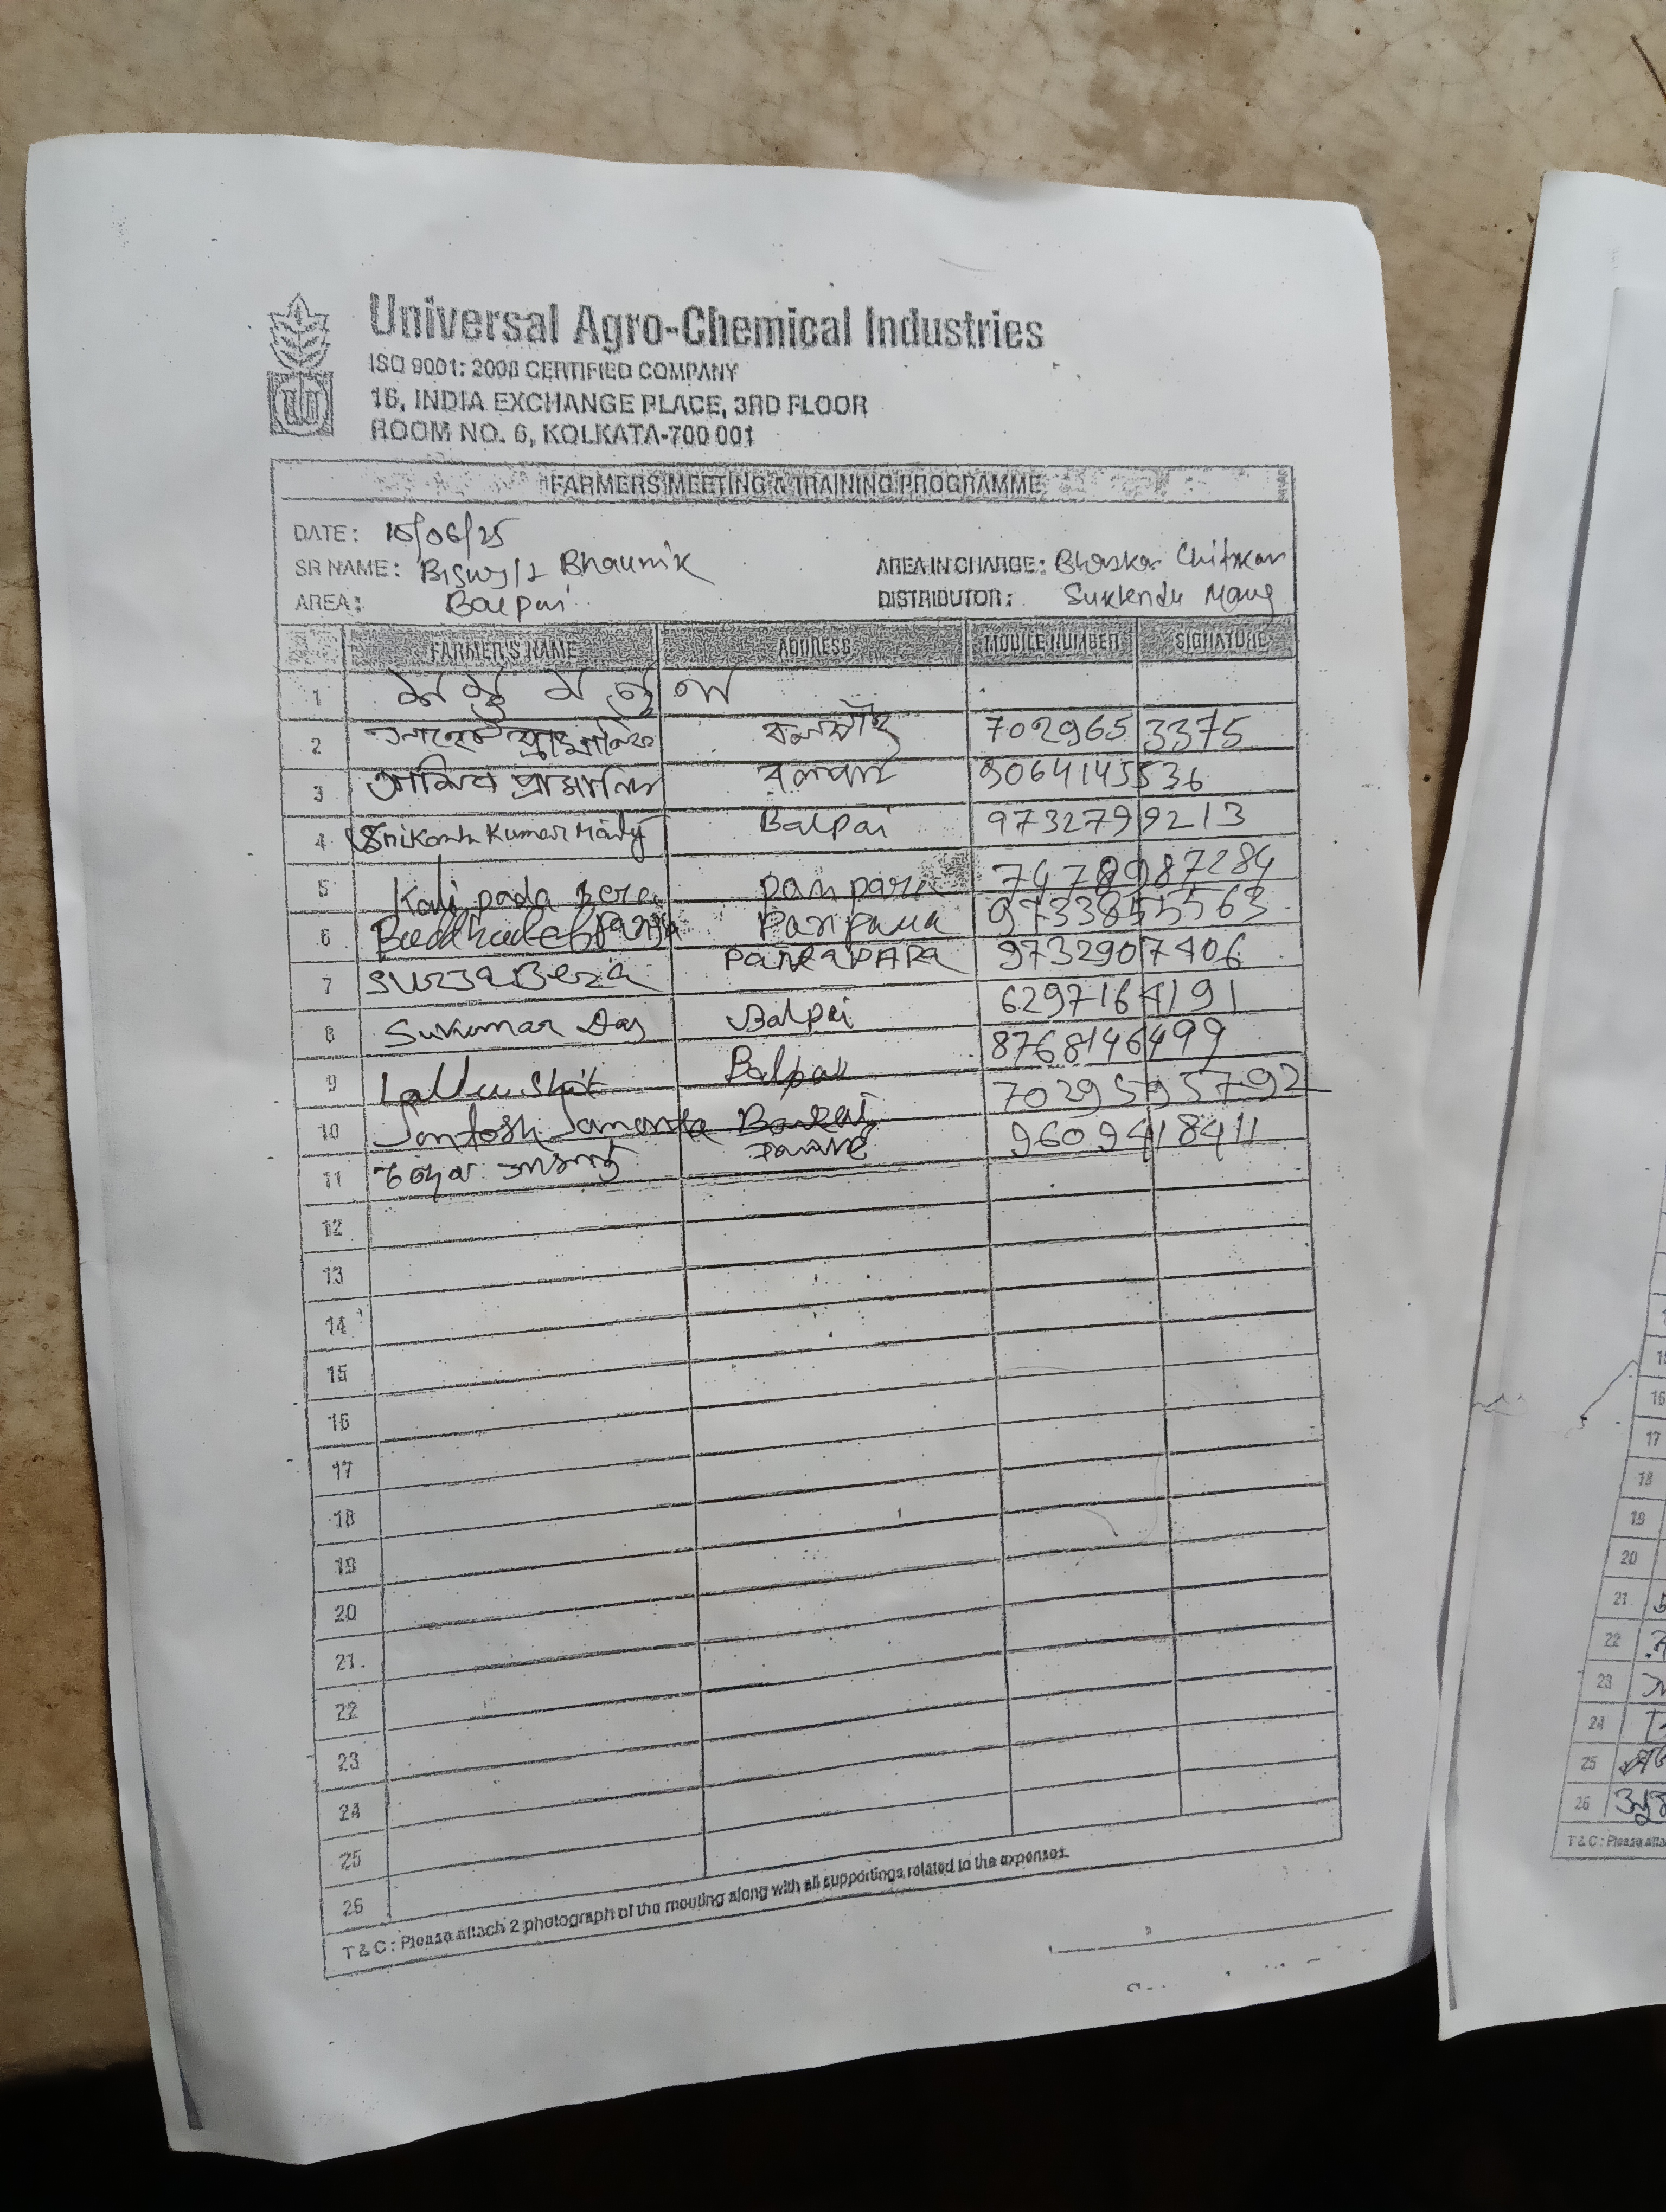 Universal Agro-Chemical Industries
ISO 9001: 2008 CERTIFIED COMPANY
16, INDIA EXCHANGE PLACE, 3RD FLOOR
ROOM NO. 6, KOLKATA-700 001
FARMERS MEETING & TRAINING PROGRAMME
DATE: /06/25
SR NAME: Bhaumik AREA IN CHARGE: Bhaskar Chitrkar
AREA: Balpai DISTRIBUTOR:
FARMER'S NAME ADDRESS MOBILE NUMBER SIGNATURE
1
2 প্রামানিক 7029653375
3 প্রামানিক বলপাই 9064145536
4 Srikanta Kumar Maity Balpai 9732799213
5 Kali pada Bera 7478987284
6 Buddhadeb 9733855563
7 SURJA Bera 9732907406
8 Sukumar Das Balpai 6297164191
9 Laltu Shit Balpai 8768146499
10 Santosh Samanta 7029595792
11 9609418411
12
13
14
15
16
17
18
19
20
21
22
23
24
25
26
T & C : Please attach 2 photograph of the meeting along with all supportings related to the expenses.
16
17
18
19
20
21
22
23
24
25
26
T & C : Please